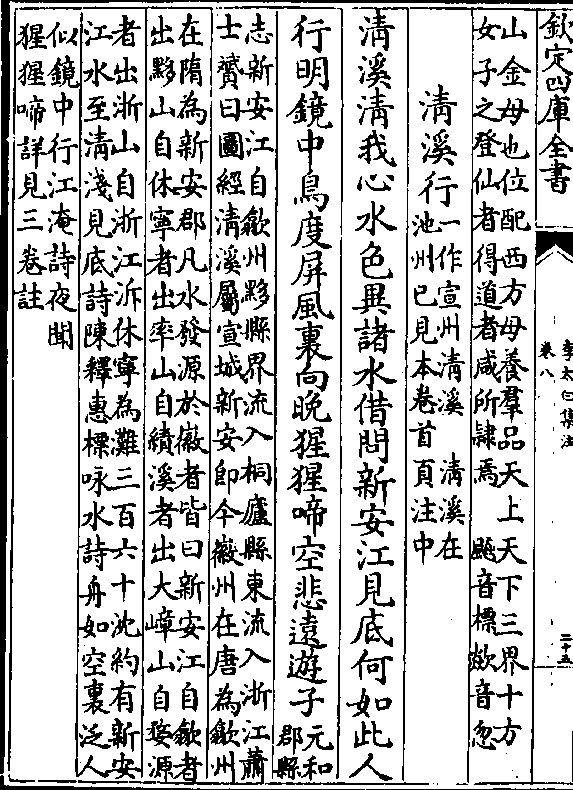 欽定四庫全書
李太白集注
卷八
二十五
山金母也位配西方母養羣品天上天下三界十方
女子之登仙者得道者咸所隸焉　飈音標歘音忽
清溪行一作宣州清溪　清溪在
池州已見本卷首頁注中
清溪清我心水色異諸水借問新安江見底何如此人
行明鏡中鳥度屏風裏向晚猩猩啼空悲遠遊子元和
郡縣
志新安江自歙州黟縣界流入桐廬縣東流入浙江蕭
士贇曰圖經清溪屬宣城新安即今徽州在唐為歙州
在隋為新安郡凡水發源於徽者皆曰新安江自歙者
出黟山自休寧者出率山自績溪者出大嶂山自婺源
者出浙山自浙江泝休寧為灘三百六十沈約有新安
江水至清淺見底詩陳釋惠標咏水詩舟如空裏泛人
似鏡中行江淹詩夜聞
猩猩啼詳見三卷註